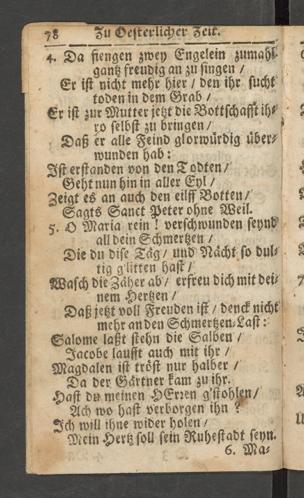 78 Zu Oesterlicher Zeit.
4. Da fiengen zwey Engelein zumahl
gantz freudig an zu singen /
Er ist nicht mehr hier / den ihr sucht
todten in dem Grab /
Er ist zur Mutter jetzt die Bottschafft ih-
ro selbst zu bringen /
Daß er alle Feind glorwürdig über-
wunden hab:
Ist erstanden von den Todten /
Geht nun hin in aller Eyl /
Zeigt es an auch den eilff Botten /
Sagts Sanct Peter ohne Weil.
5. O Maria rein! verschwunden seynd
all dein Schmertzen /
Die du dise Täg / und Nächt so dul-
tig g'litten hast /
Wasch die Zäher ab / erfreu dich mit dei-
nem Hertzen /
Daß jetzt voll Freuden ist / denck nicht
mehr an den Schmertzen-Last:
Salome laßt stehn die Salben /
Jacobe laufft auch mit ihr /
Magdalen ist tröst nur halber /
Da der Gärtner kam zu ihr.
Hast du meinen HErren g'stohlen /
Ach wo hast verborgen ihn?
Ich will ihne wider holen /
Mein Hertz soll sein Ruhestadt seyn.
6. Ma-